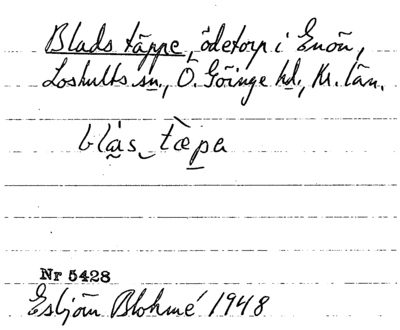 Blads täppe, ödetorp i Enön,
Loshults sn, Ö. Göinge hd, Kr. län.
blàs_tæ̀pa
Nr 5428
Esbjörn Blohmé 1948